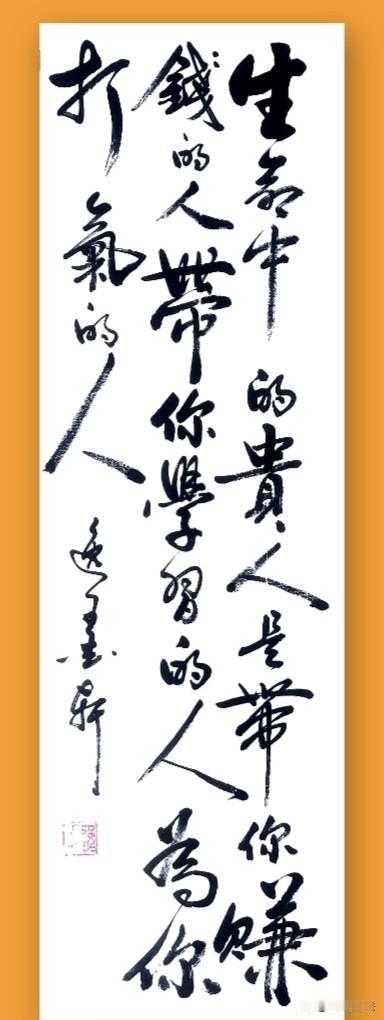 生命中的貴人是帶你賺
錢的人帶你學習的人為你
打氣的人
逸墨軒